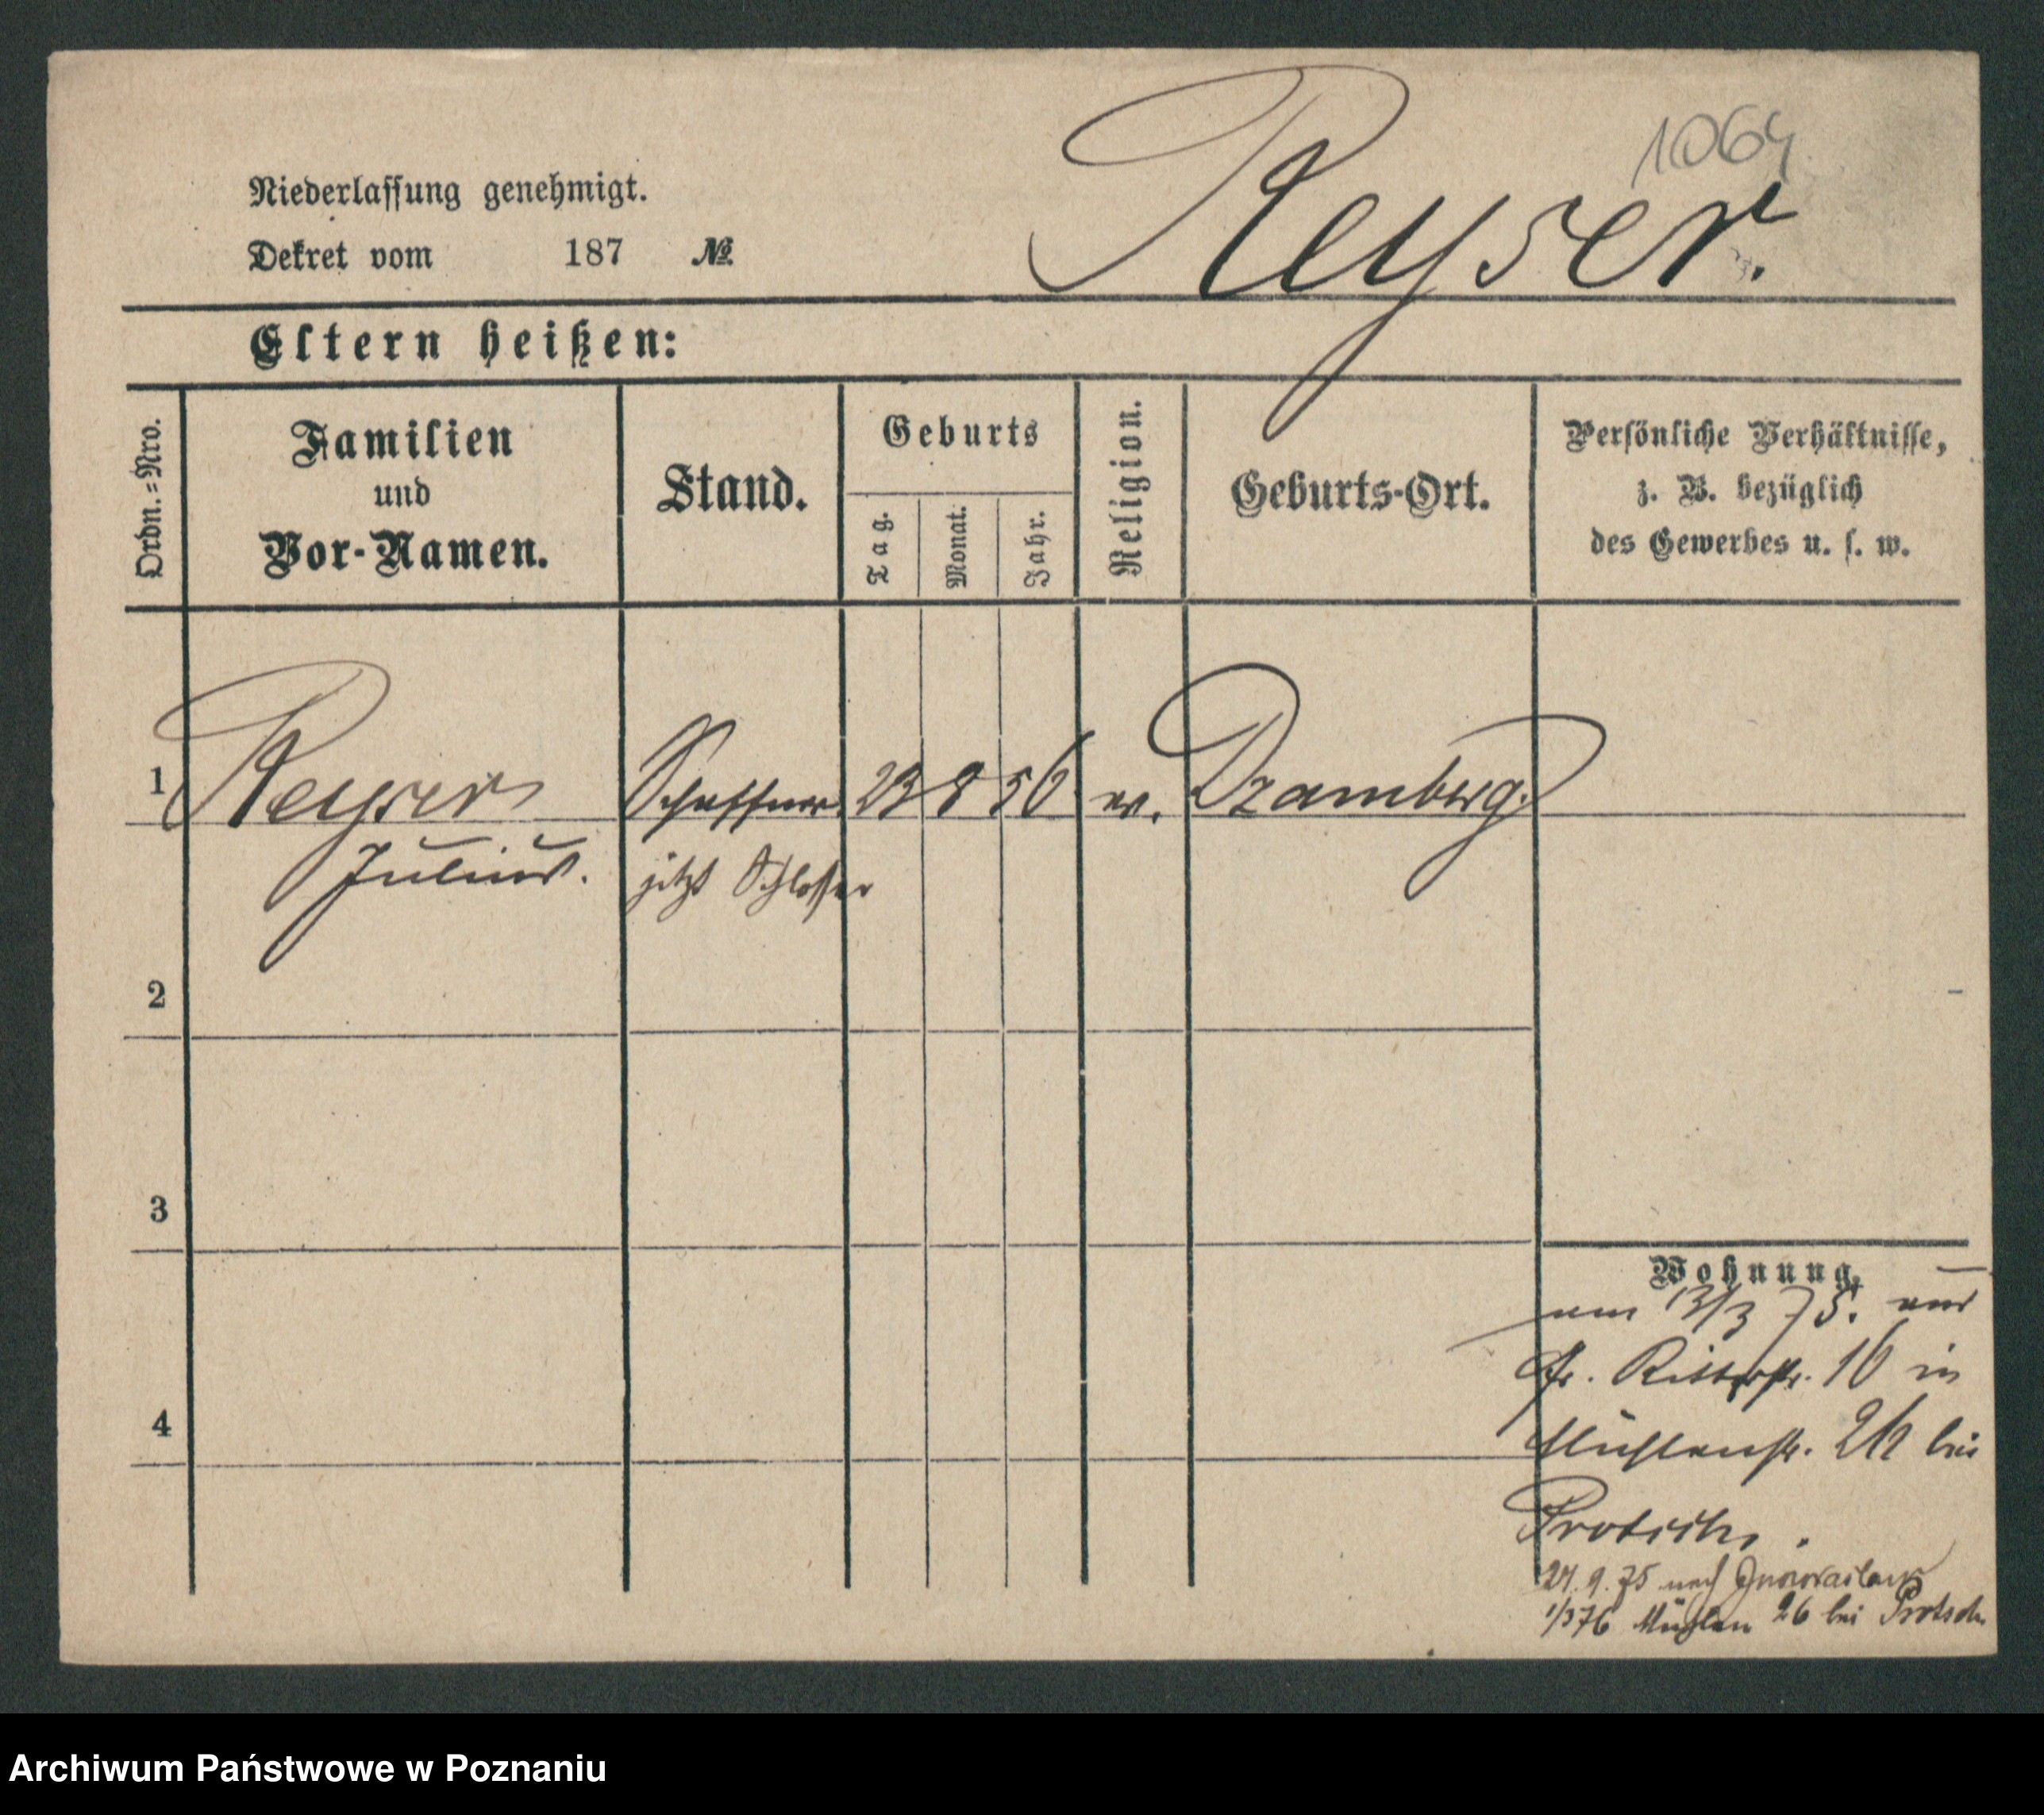 1064
Reyser.
Niederlassung genehmigt.
Dekret vom 187 №
Eltern heißen:
Ordn.=Nro.
Familien
und
Vor-Namen.
Stand.
Geburts
Tag.
Monat.
Jahr.
Religion.
Geburts-Ort.
Persönliche Verhältnisse,
z. B. bezüglich
des Gewerbes u. s. w.
1 Reyser Schaffner 23 8 56 ev. Dramberg.
Julius. jetzt Schlosser
2
3
4
Wohnung.
am 13/3 75. von
Gr. Ritterstr. 16 in
Mühlenstr. 26 bei
Protsch.
24. 9. 75 nach Inowraclaw
1/3 76 Mühlen 26 bei Protsch.
Archiwum Państwowe w Poznaniu